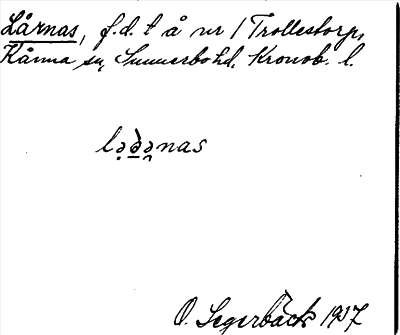 Lårnas, f.d. t å nr 1 Trollestorp,
Kånna sn, Sunnerbohd. Kronob. l.
O. Segerbäck 1937